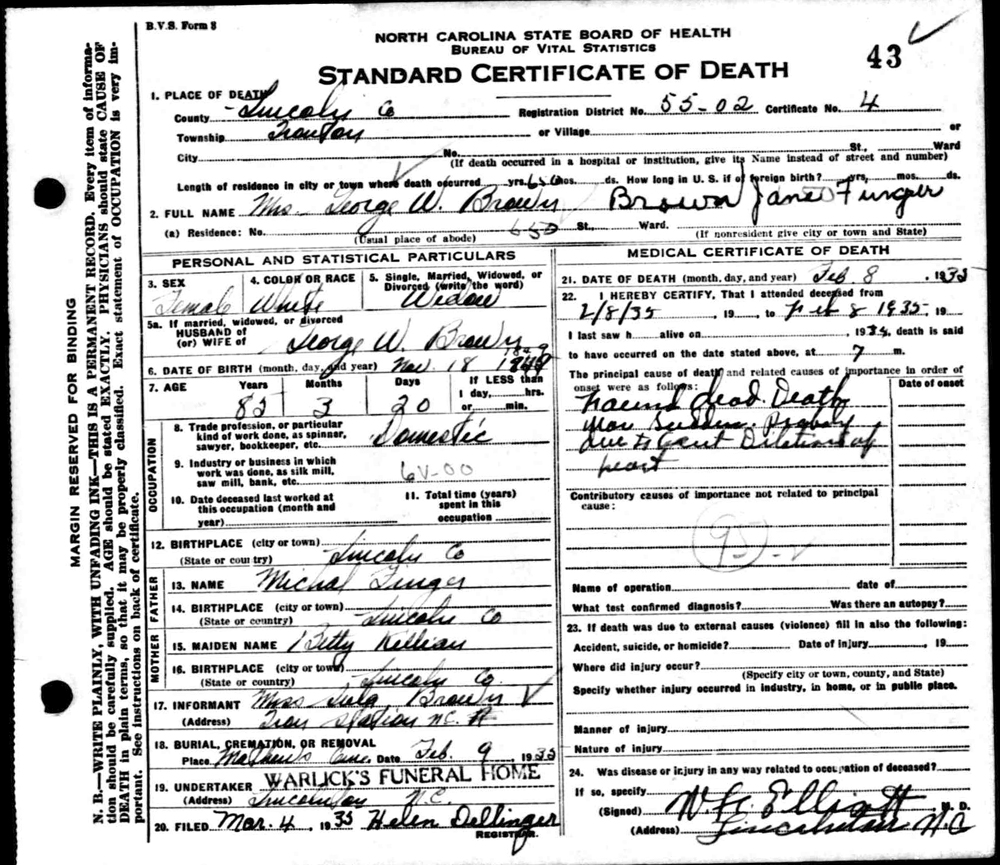 B.V.S. Form 8
NORTH CAROLINA STATE BOARD OF HEALTH
BUREAU OF VITAL STATISTICS
STANDARD CERTIFICATE OF DEATH
43
MARGIN RESERVED FOR BINDING
N. B.—WRITE PLAINLY, WITH UNFADING INK—THIS IS A PERMANENT RECORD. Every item of informa-
tion should be carefully supplied. AGE should be stated EXACTLY. PHYSICIANS should state CAUSE OF
DEATH in plain terms, so that it may be properly classified. Exact statement of OCCUPATION is very im-
portant. See instructions on back of certificate.
1. PLACE OF DEATH
County Lincoln Co Registration District No. 55-02 Certificate No. 4
Township Ironton or Village or
City No. St., Ward
(If death occurred in a hospital or institution, give its Name instead of street and number)
Length of residence in city or town where death occurred yrs. mos. ds. How long in U. S. if of foreign birth? yrs. mos. ds.
2. FULL NAME Mrs. George W. Brown Brown Jane Finger
(a) Residence: No. 650 St., Ward.
(Usual place of abode) (If nonresident give city or town and State)
PERSONAL AND STATISTICAL PARTICULARS
3. SEX Female
4. COLOR OR RACE White
5. Single, Married, Widowed, or Divorced (write the word) Widow
5a. If married, widowed, or divorced
HUSBAND of
(or) WIFE of George W. Brown
6. DATE OF BIRTH (month, day, and year) Nov. 18 1849
7. AGE Years Months Days If LESS than
1 day, hrs.
85 3 20 or min.
OCCUPATION
8. Trade profession, or particular
kind of work done, as spinner,
sawyer, bookkeeper, etc. Domestic
9. Industry or business in which
work was done, as silk mill,
saw mill, bank, etc. 6V-00
10. Date deceased last worked at
this occupation (month and
year)
11. Total time (years)
spent in this
occupation
12. BIRTHPLACE (city or town)
(State or country) Lincoln Co
FATHER
13. NAME Michal Finger
14. BIRTHPLACE (city or town)
(State or country) Lincoln Co
MOTHER
15. MAIDEN NAME Betty Killian
16. BIRTHPLACE (city or town)
(State or country) Lincoln Co
17. INFORMANT Miss Brown
(Address) Iron Station N.C. R
18. BURIAL, CREMATION, OR REMOVAL
Place Date Feb. 9 1935
19. UNDERTAKER WARLICK'S FUNERAL HOME
(Address) Lincolnton N.C.
20. FILED Mar. 4, 1935 Helen Dellinger
REGISTRAR.
MEDICAL CERTIFICATE OF DEATH
21. DATE OF DEATH (month, day, and year) Feb. 8, 1935
22. I HEREBY CERTIFY, That I attended deceased from
2/8/35, 19 to Feb 8 1935, 19
I last saw h alive on , 193 , death is said
to have occurred on the date stated above, at 7 m.
The principal cause of death and related causes of importance in order of
onset were as follows: Date of onset
Found dead. Death
was Sudden. Probably
due to Dilation of
heart
Contributory causes of importance not related to principal
cause:
95
Name of operation date of
What test confirmed diagnosis? Was there an autopsy?
23. If death was due to external causes (violence) fill in also the following:
Accident, suicide, or homicide? Date of injury , 19
Where did injury occur?
(Specify city or town, county, and State)
Specify whether injury occurred in industry, in home, or in public place.
Manner of injury
Nature of injury
24. Was disease or injury in any way related to occupation of deceased?
If so, specify
(Signed) Elliott M. D.
(Address) Lincolnton N.C